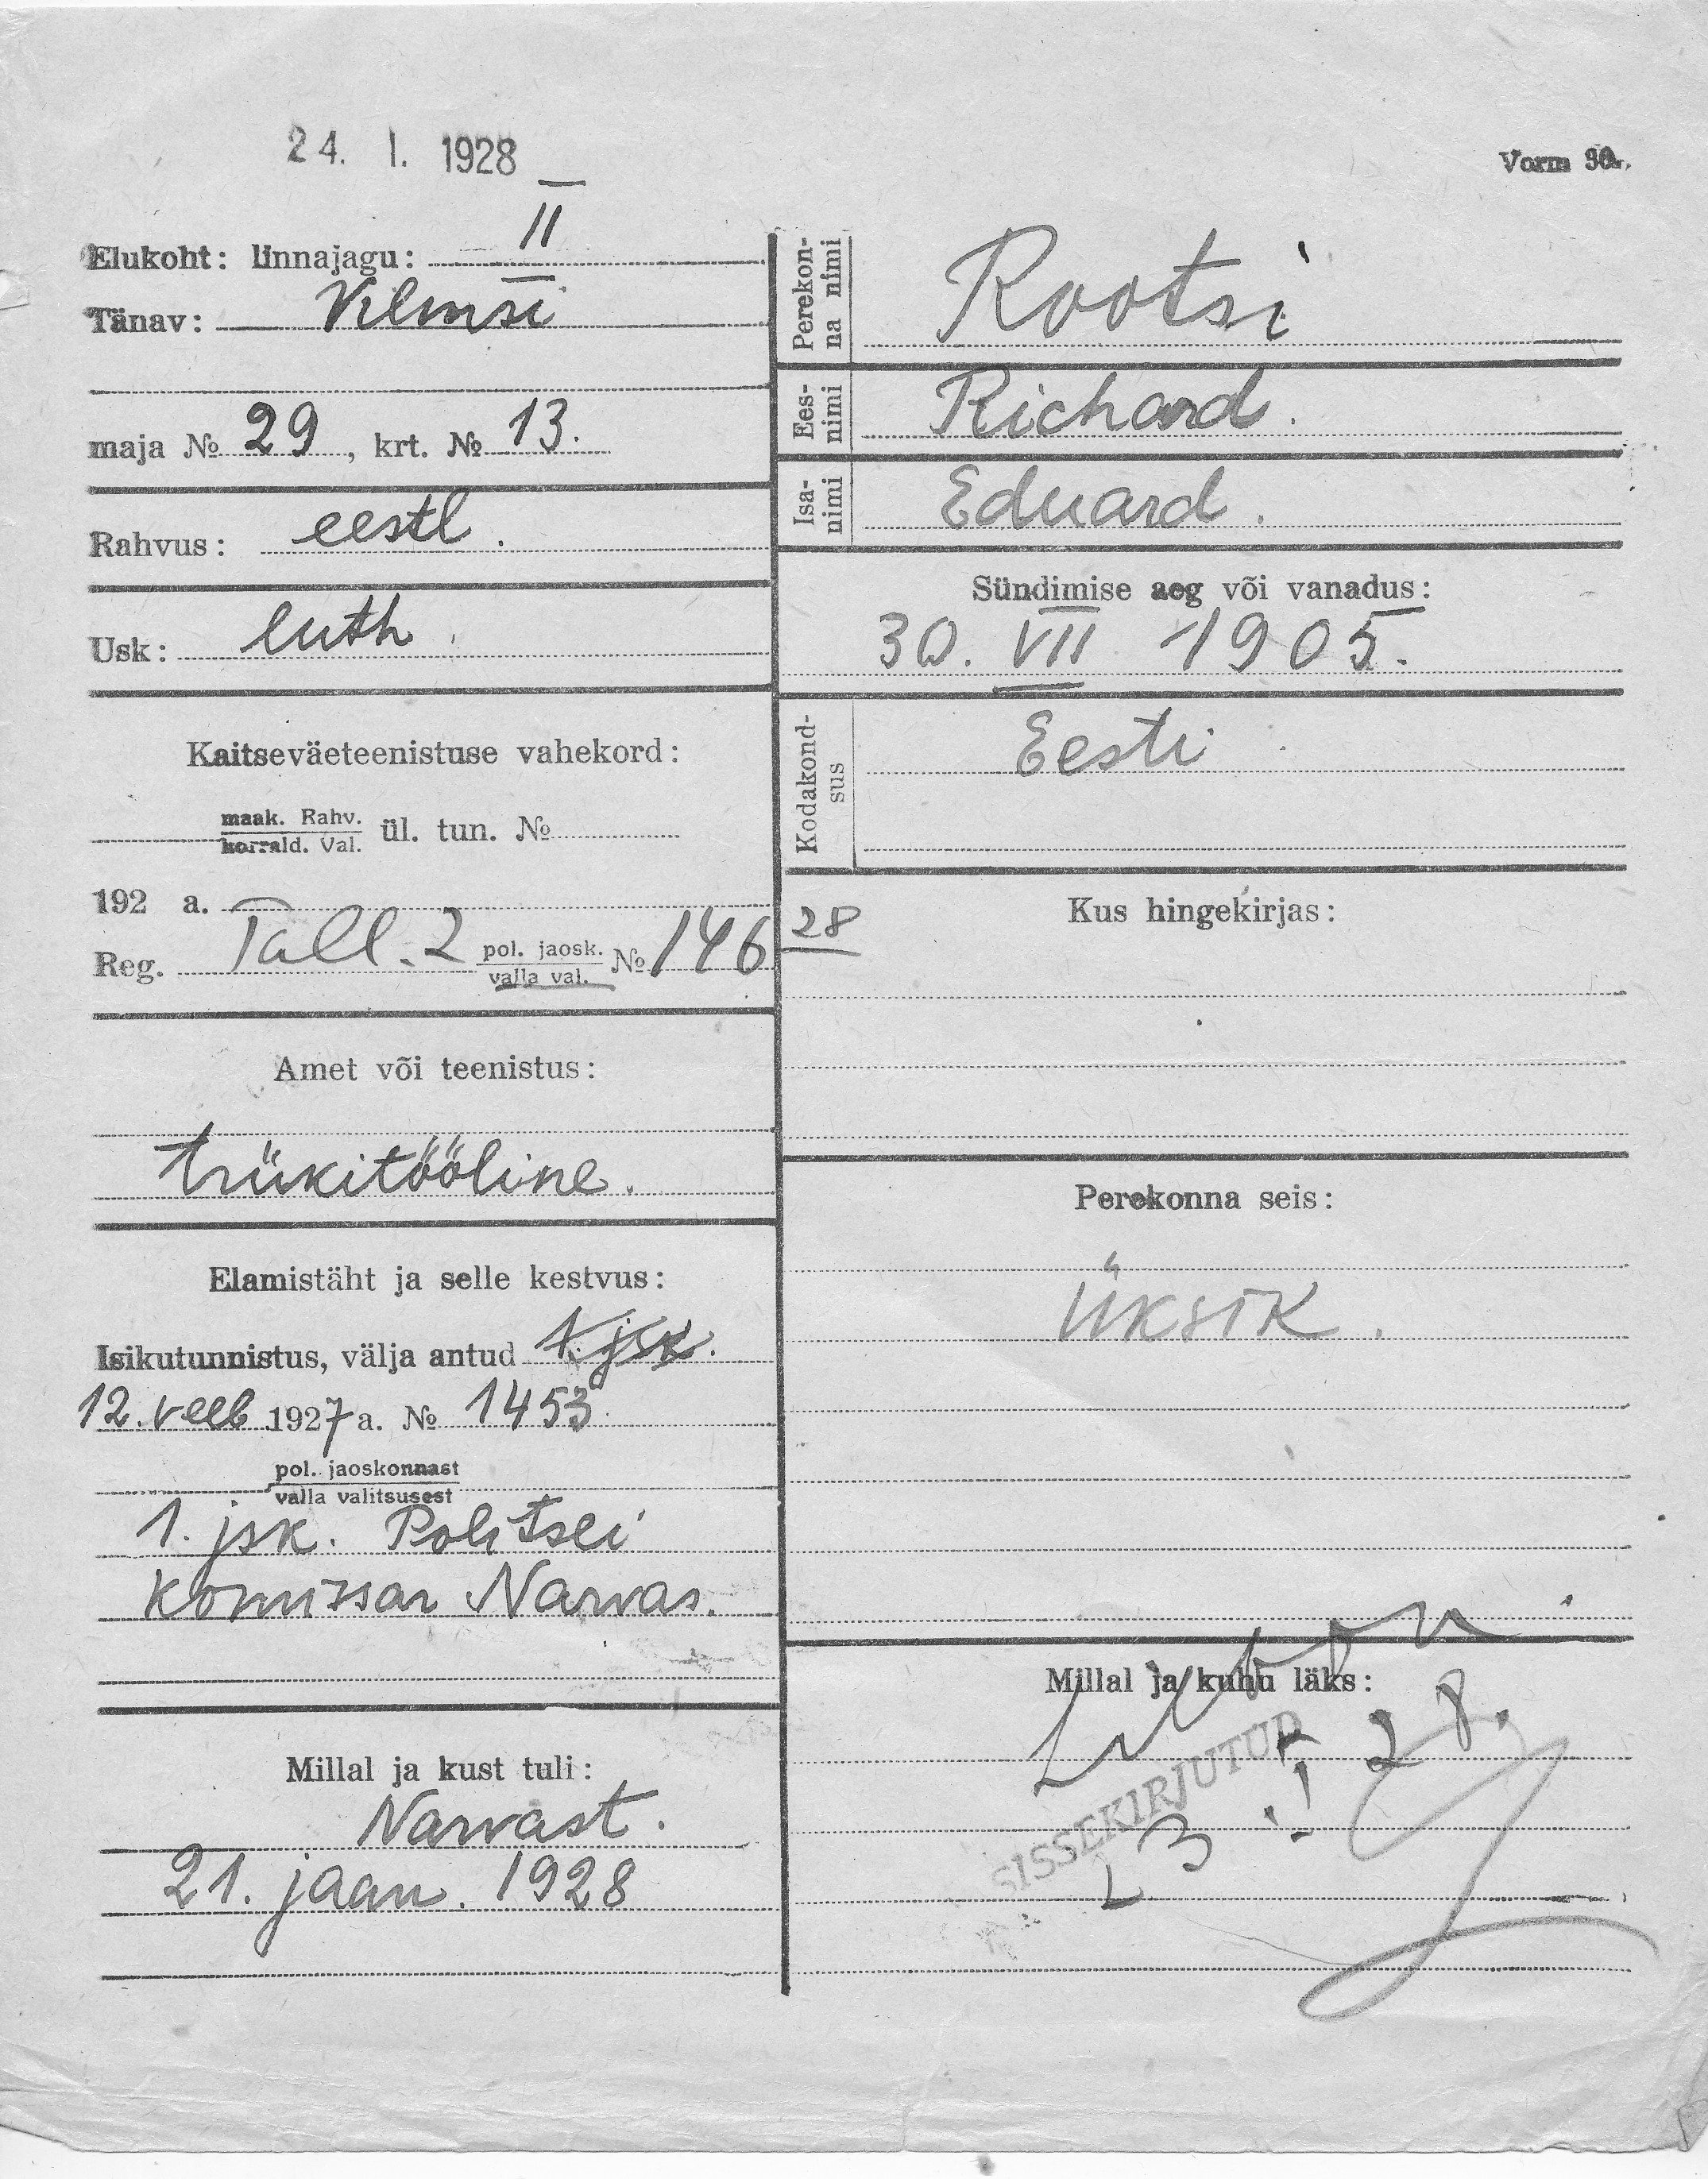 24. I. 1928
Vorm 30.
Elukoht: linnajagu: II
Tänav: Vilmsi
maja № 29, krt. № 13.
Rahvus: eestl.
Usk: luth.
Kaitseväeteenistuse vahekord:
maak. Rahv.
korrald. Val. ül. tun. №
192 a.
Reg. Tall. 2 pol. jaosk. № 146 28
valla val.
Amet või teenistus:
trükitööline.
Elamistäht ja selle kestvus:
Isikutunnistus, välja antud 1. jsk.
12. veeb 1927 a. № 1453
pol. jaoskonnast
valla valitsusest
1. jsk. Politsei
Komissar Narvas.
Millal ja kust tuli:
Narvast.
21. jaan. 1928
Perekonna nimi
Rootsi
Eesnimi
Richard.
Isanimi
Eduard.
Sündimise aeg või vanadus:
30. VII 1905.
Kodakondsus
Eesti
Kus hingekirjas:
Perekonna seis:
üksik.
Millal ja kuhu läks:
SISSEKIRJUTUD
28.